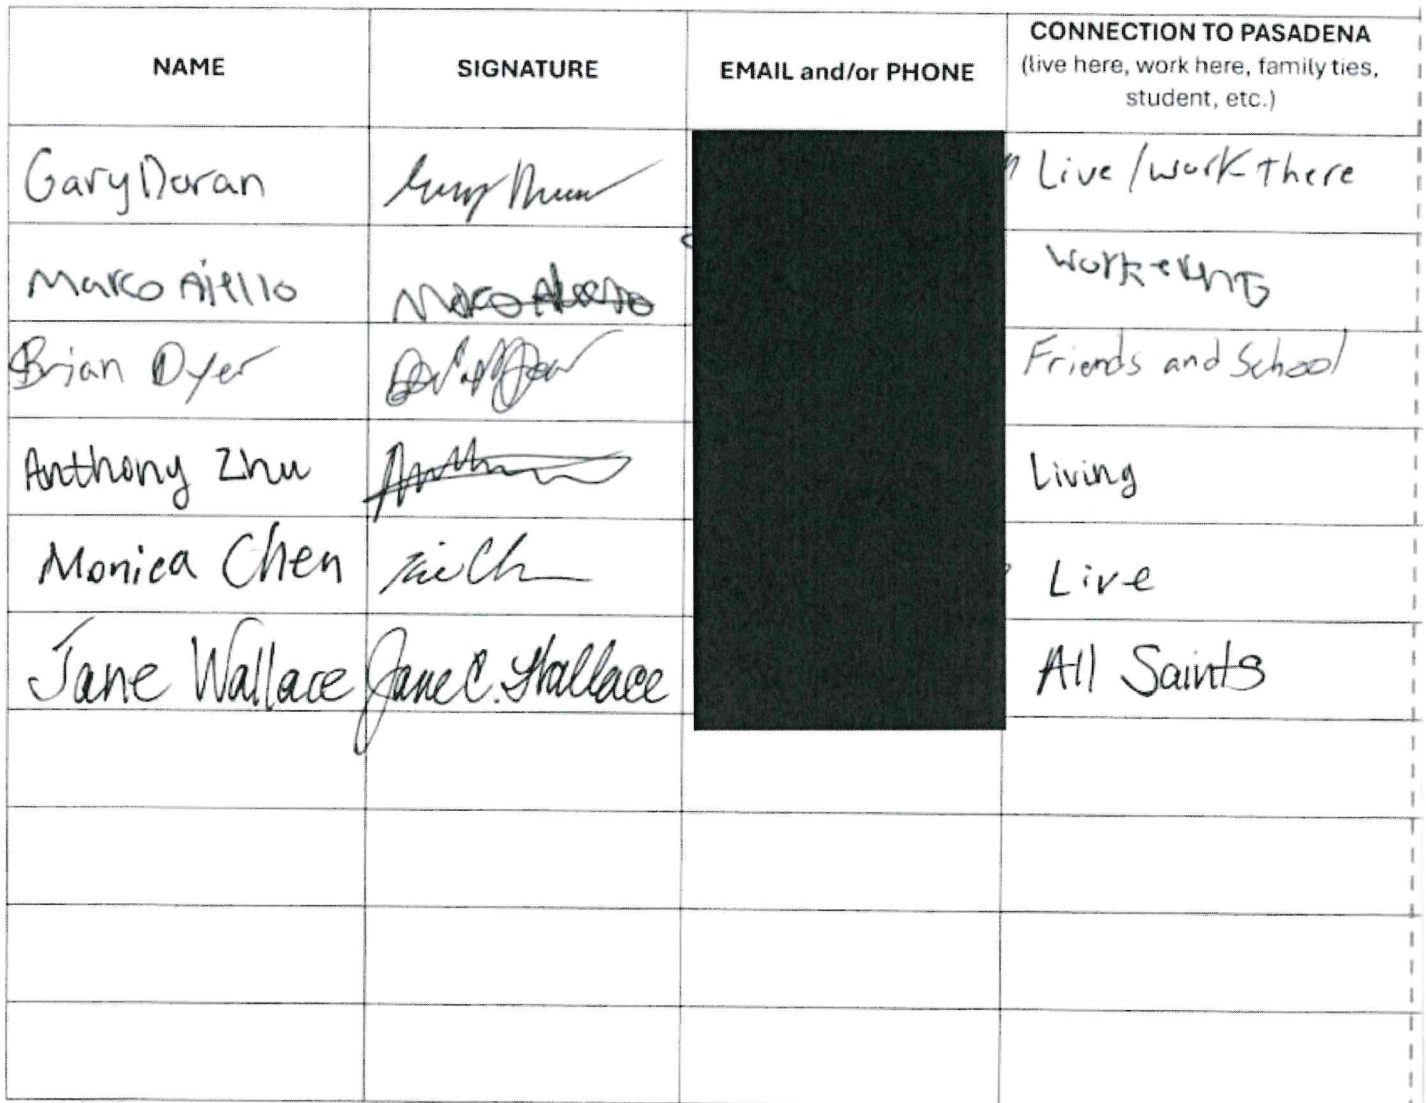 NAME SIGNATURE EMAIL and/or PHONE CONNECTION TO PASADENA
(live here, work here, family ties,
student, etc.)
Gary Doran Live / work there
Marco Aiello Marco
Brian Dyer Friends and School
Anthony Zhu Living
Monica Chen Live
Jane Wallace Jane C. Wallace All Saints